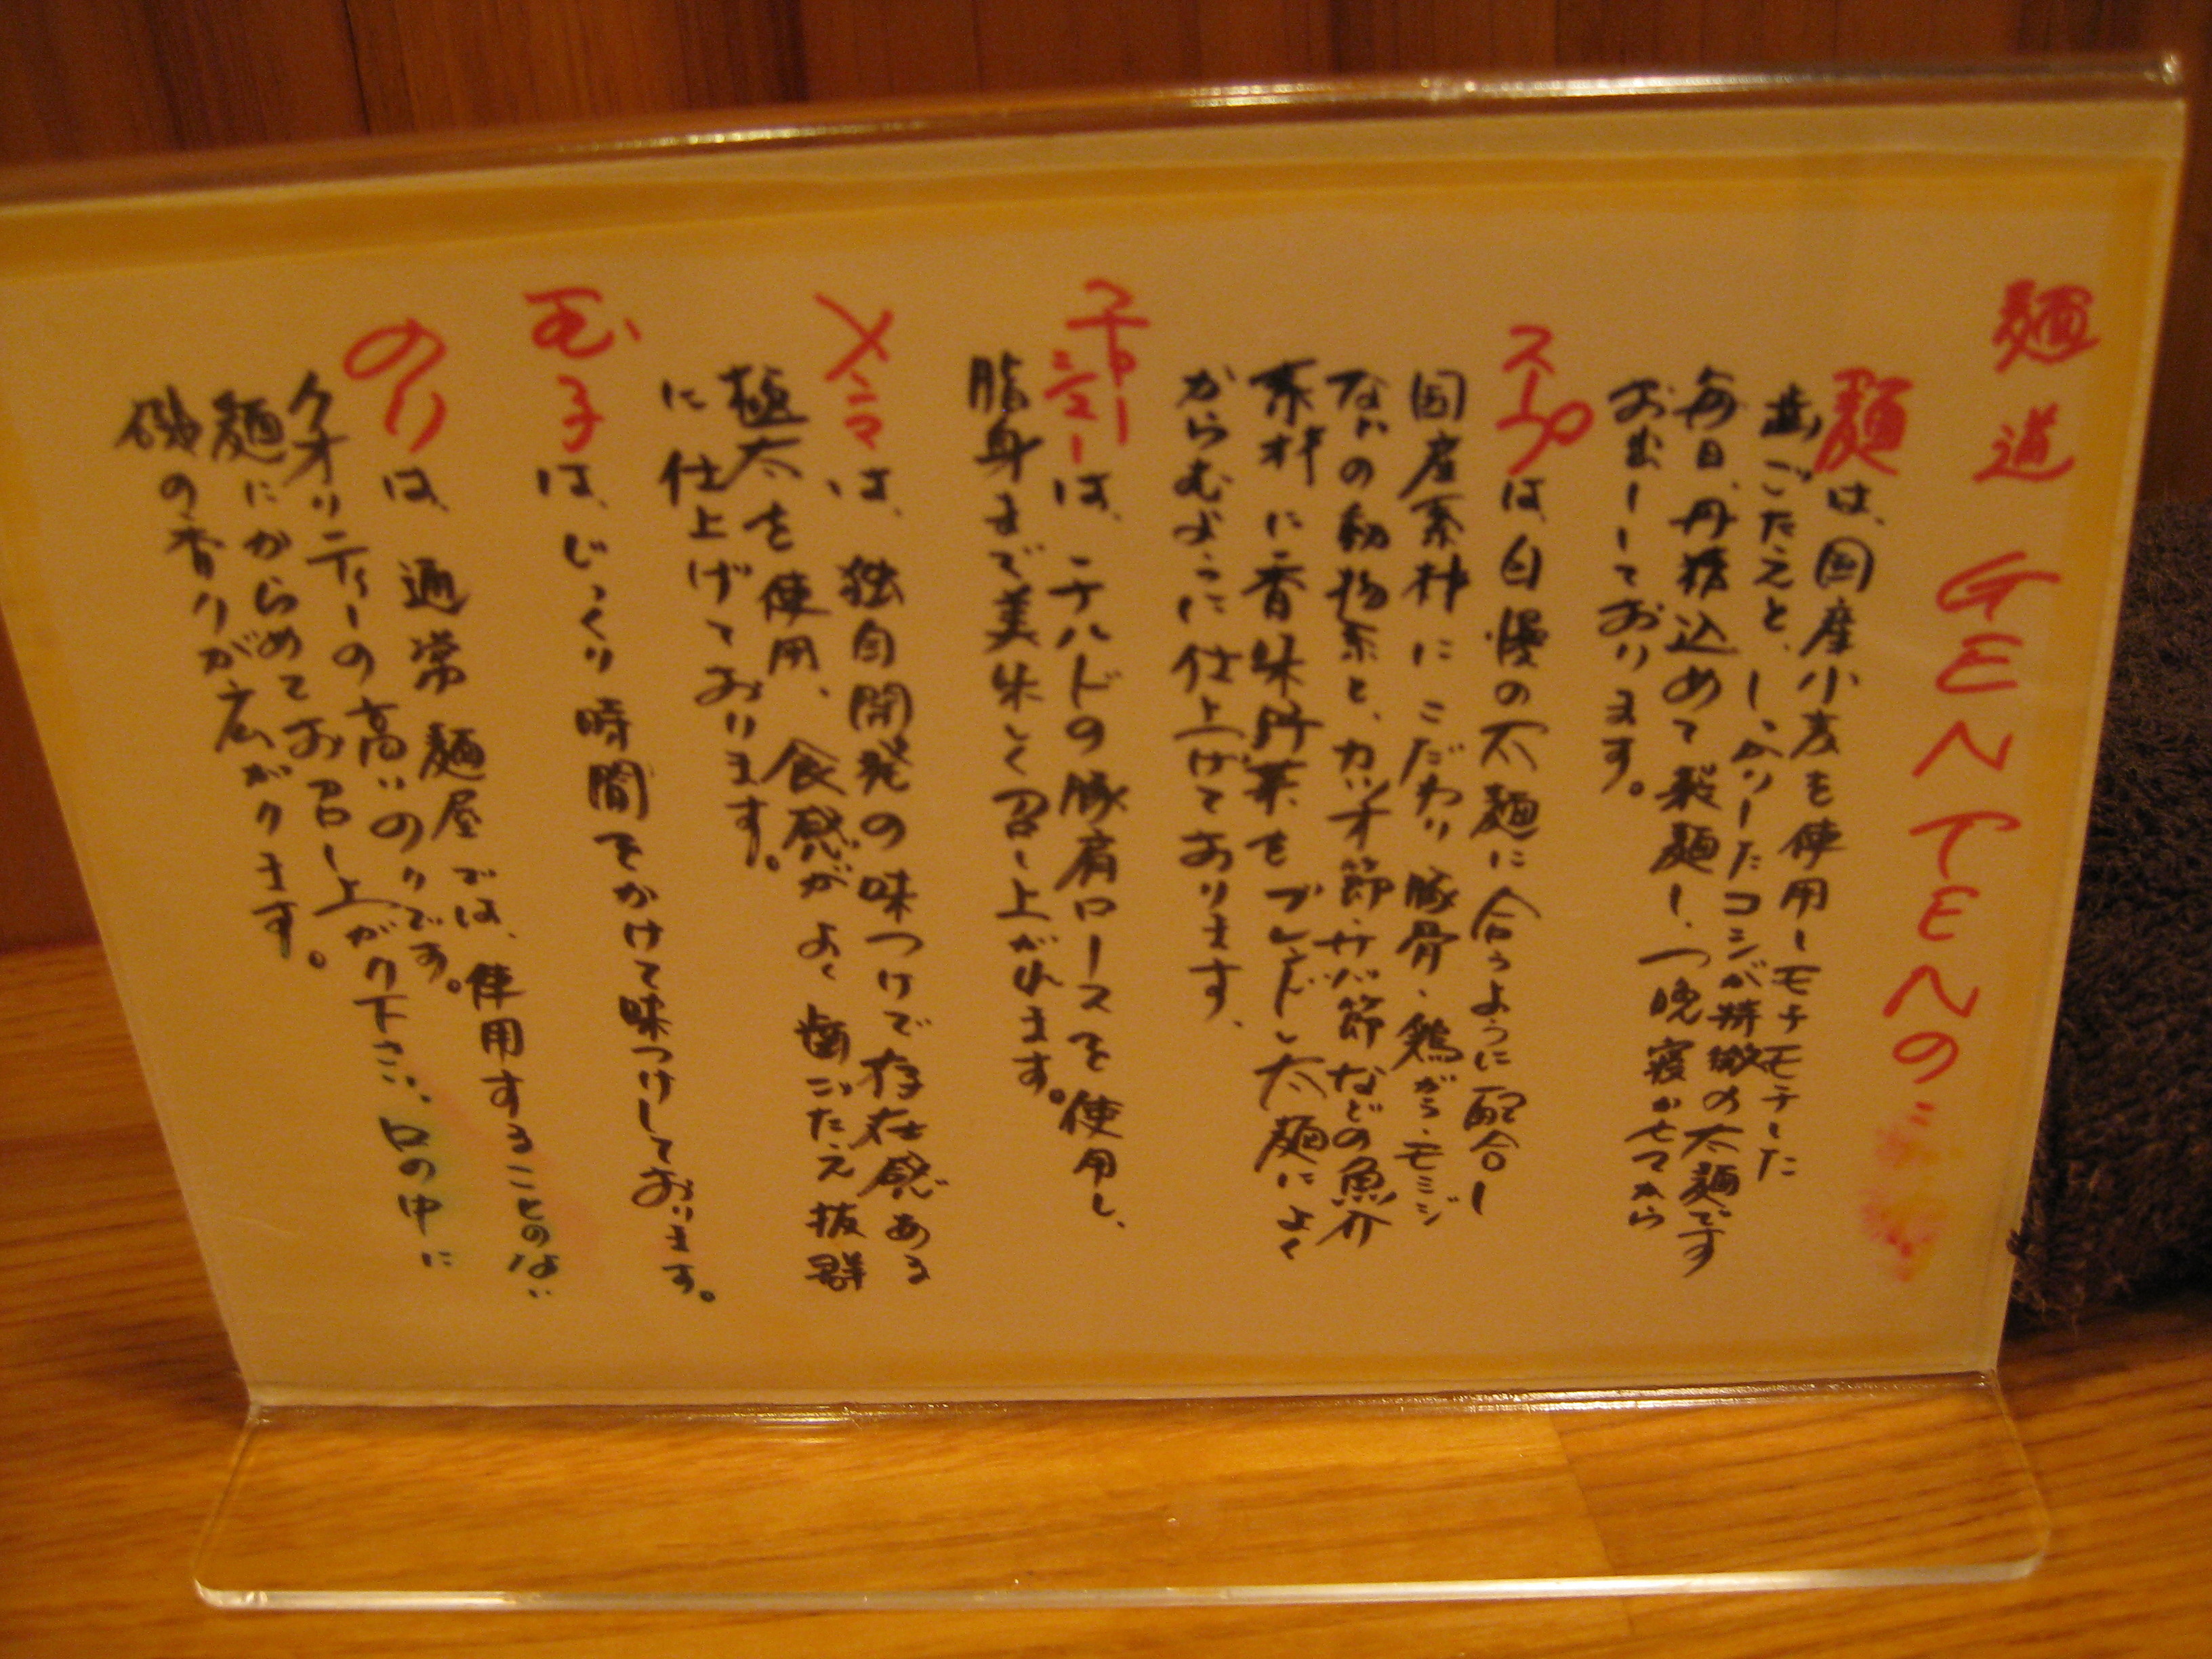 麺道 GENTENの
麺は、国産小麦を使用しモチモチした
歯ごたえと、しっかりしたコシが特徴の太麺です
毎日、丹精込めて製麺し、一晩寝かせてから
お出ししております。
スープは自慢の太麺に合うように配合し
国産素材にこだわり豚骨・鶏がら・モミジ
などの動物系と、カツオ節・サバ節などの魚介
素材に香味野菜をブレンドし太麺によく
からむように仕上げております、
チャーシューは、チルドの豚肩ロースを使用し、
脂身まで美味しく召し上がれます。
メンマは、独自開発の味つけで存在感ある
極太を使用、食感がよく歯ごたえ抜群
に仕上げております。
玉子は、じっくり時間をかけて味つけしております。
のりは、通常麺屋では、使用することのない
クオリティーの高いのりです。
麺にからめてお召し上がり下さい、口の中に
磯の香りが広がります。